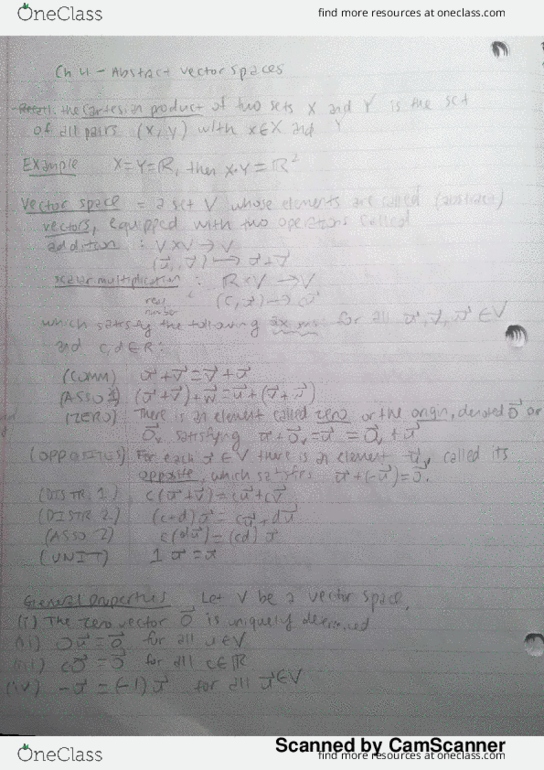 OneClass
find more resources at oneclass.com
Ch 4 - Abstract vector spaces
Recall, the cartesian product of two sets X and Y is the set
of all pairs (x, y) with x∈X and Y
Example X=Y=ℝ, then X×Y=ℝ²
Vector space = a set V whose elements are called (abstract)
vectors, equipped with two operations called
addition : V×V→V
(u⃗, v⃗) ↦ u⃗+v⃗
scalar multiplication : ℝ×V→V
real number (c, u⃗) → cu⃗
which satisfy the following axioms: for all u⃗, v⃗, w⃗ ∈V
and c,d∈ℝ:
(COMM) u⃗+v⃗=v⃗+u⃗
(ASSO 1) (u⃗+v⃗)+w⃗=u⃗+(v⃗+w⃗)
(ZERO) There is an element called zero or the origin, denoted 0⃗ or
0⃗ᵥ satisfying u⃗+0⃗ᵥ=u⃗=0⃗ᵥ+u⃗
(OPPOSITES) For each u⃗∈V there is an element -u⃗, called its
opposite, which satisfies u⃗+(-u⃗)=0⃗.
(DISTR. 1) c(u⃗+v⃗)=cu⃗+cv⃗
(DISTR 2) (c+d)u⃗=cu⃗+du⃗
(ASSO 2) c(du⃗)=(cd)u⃗
(UNIT) 1u⃗=u⃗
General properties Let V be a vector space.
(i) The zero vector 0⃗ is uniquely determined
(ii) 0u⃗=0⃗ for all u∈V
(iii) c0⃗=0⃗ for all c∈ℝ
(iv) -u⃗=(-1)u⃗ for all u⃗∈V
Scanned by CamScanner
OneClass
find more resources at oneclass.com